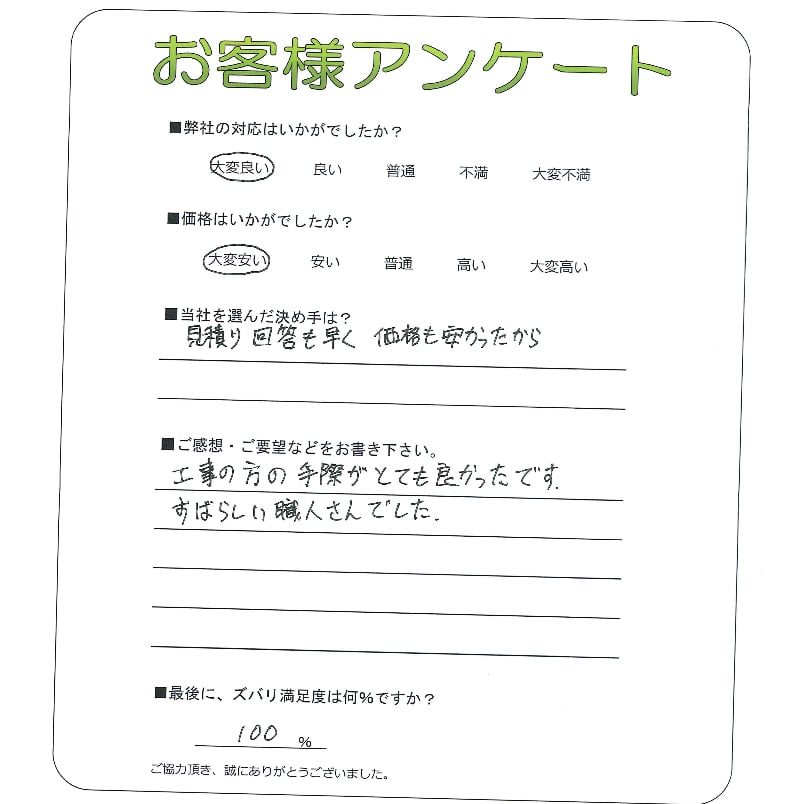 お客様アンケート
■弊社の対応はいかがでしたか？
大変良い 良い 普通 不満 大変不満
■価格はいかがでしたか？
大変安い 安い 普通 高い 大変高い
■当社を選んだ決め手は？
見積り回答も早く 価格も安かったから
■ご感想・ご要望などをお書き下さい。
工事の方の手際がとても良かったです.
すばらしい職人さんでした.
■最後に、ズバリ満足度は何%ですか？
100 %
ご協力頂き、誠にありがとうございました。